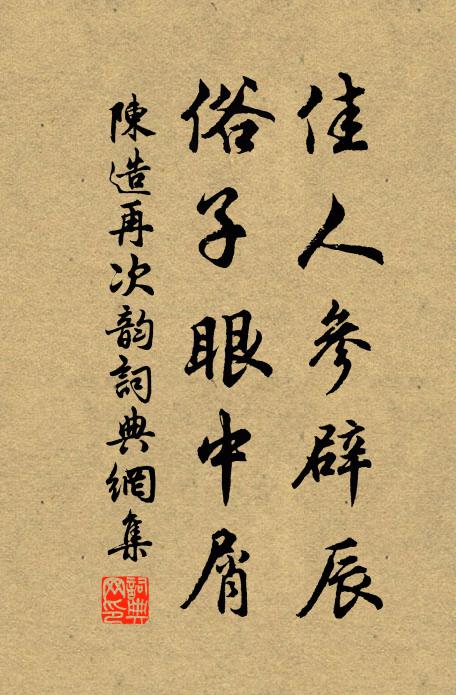 佳人參辟辰
俗子眼中屑
陳造再次韵詞典網集
詞典網印